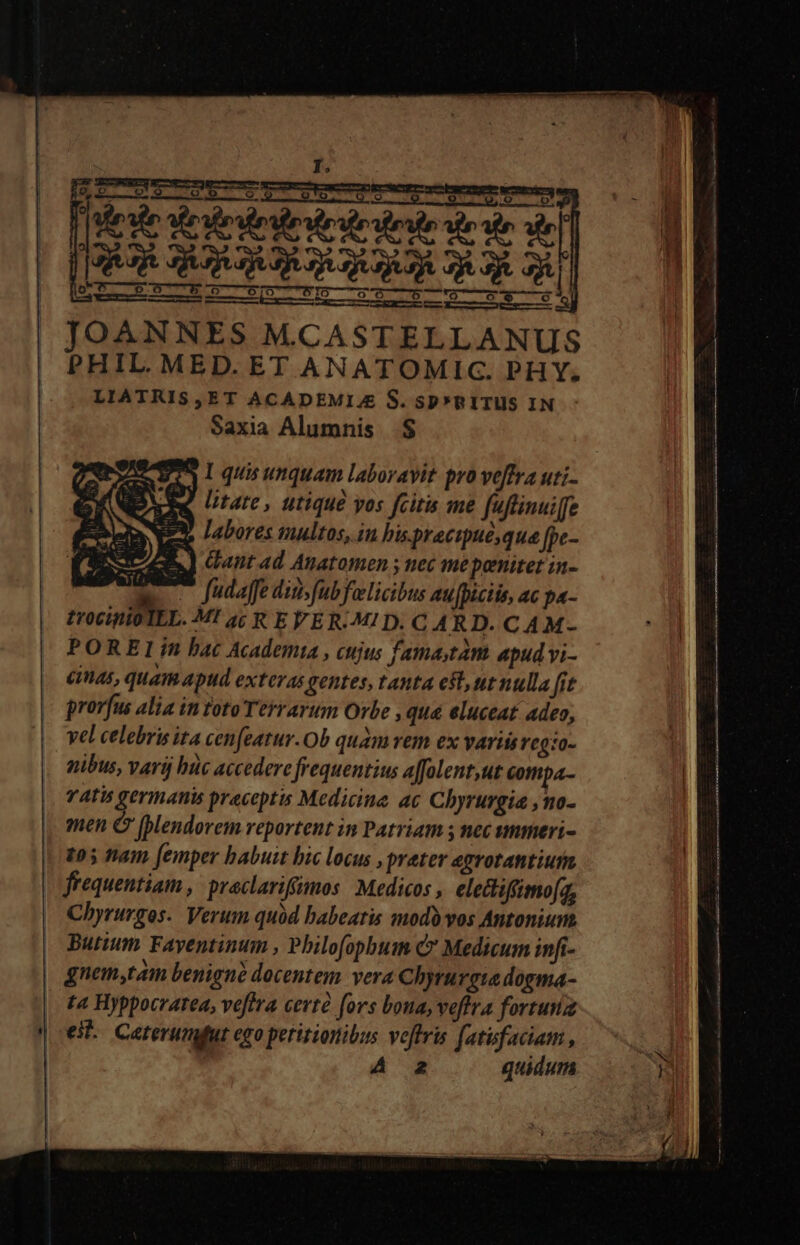 I.
JOANNES M.CASTELLANUS
PHIL. MED. ET ANATOMIC. PHY.
LIATRIS, ET ACADEMIÆ S. SPIRITUS IN
Saxia Alumnis S
I quis unquam laboravit pro veſtra uti-
litate, utiquè vos ſcitis me ſuſtinuiſſe
labores multos, in his præcipuè, quæ ſpe-
ctant ad Anatomen; nec me pœnitet in-
ſudaſſe diù, ſub fœlicibus auſpiciis, ac pa-
trocinio ILL. MI ac REVER. MI D. CARD. CAM-
POREI in hac Academia, cujus fama, tàm apud vi-
cinas, quam apud exteras gentes, tanta eſt, ut nulla ſit
prorſus alia in toto Terrarum Orbe, quæ eluceat adeo,
vel celebris ita cenſeatur. Ob quàm rem ex variis regio-
nibus, varij hùc accedere frequentius aſſolent, ut compa-
ratis germanis præceptis Medicinæ ac Chyrurgiæ, no-
men & ſplendorem reportent in Patriam; nec immeri-
tò; nam ſemper habuit hic locus, præter ægrotantium
frequentiam, præclariſſimos Medicos, electiſſimoſq;
Chyrurgos. Verum quòd habeatis modò vos Antonium
Butium Faventinum, Philoſophum & Medicum inſi-
gnem, tàm benignè docentem vera Chyrurgiæ dogma-
ta Hyppocratea, veſtra certè ſors bona, veſtra fortuna
eſt. Cæterum, ut ego petitionibus veſtris ſatisfaciam,
A 2 quidum